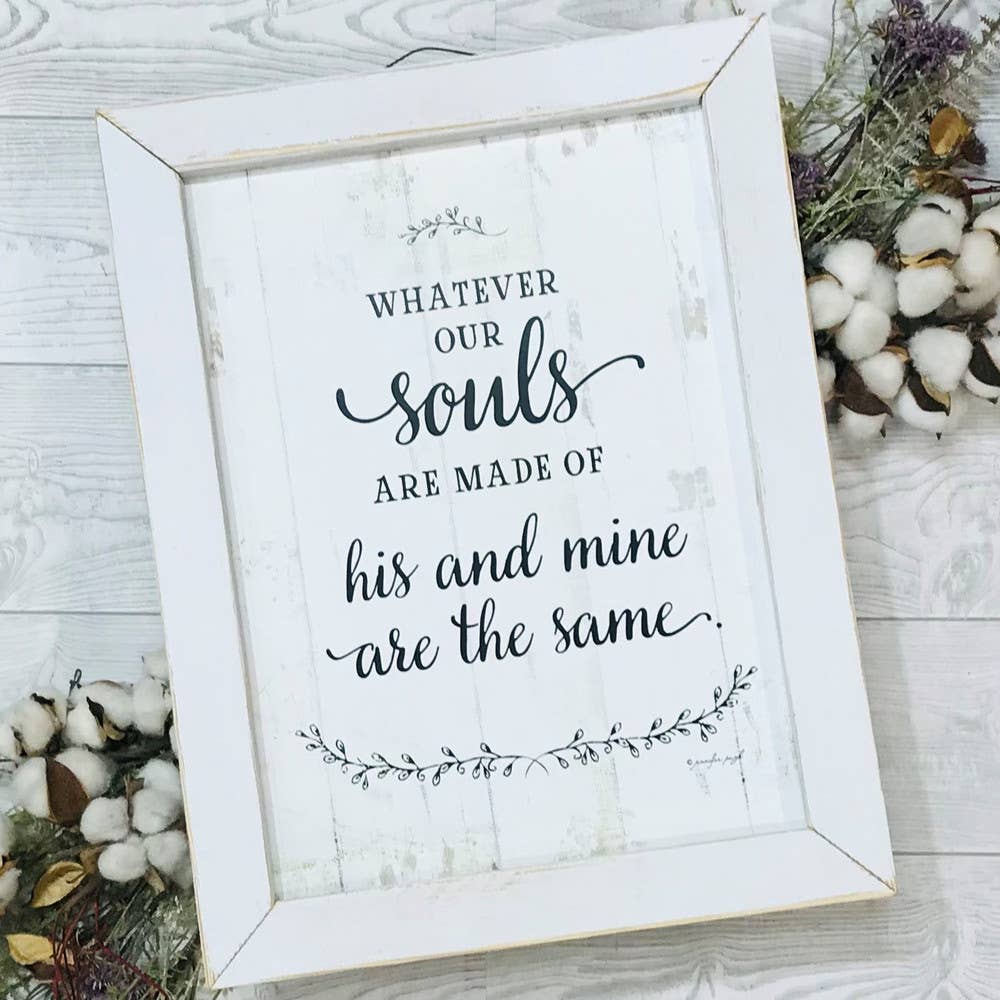 WHATEVER
OUR
souls
ARE MADE OF
his and mine
are the same.